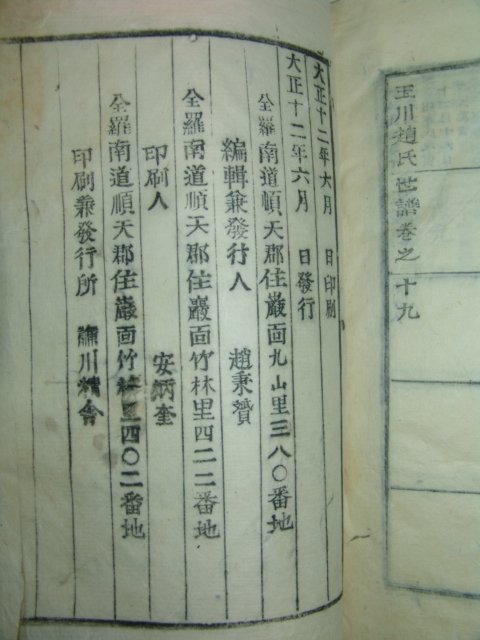 玉川趙氏世譜卷之十九
大正十二年六月 日印刷
大正十二年六月 日發行
全羅南道順天郡住巖面九山里三八〇番地
編輯兼發行人 趙秉贊
全羅南道順天郡住巖面竹林里四二二番地
印刷人 安炳奎
全羅南道順天郡住巖面竹林里四〇二番地
印刷兼發行所 川精舍